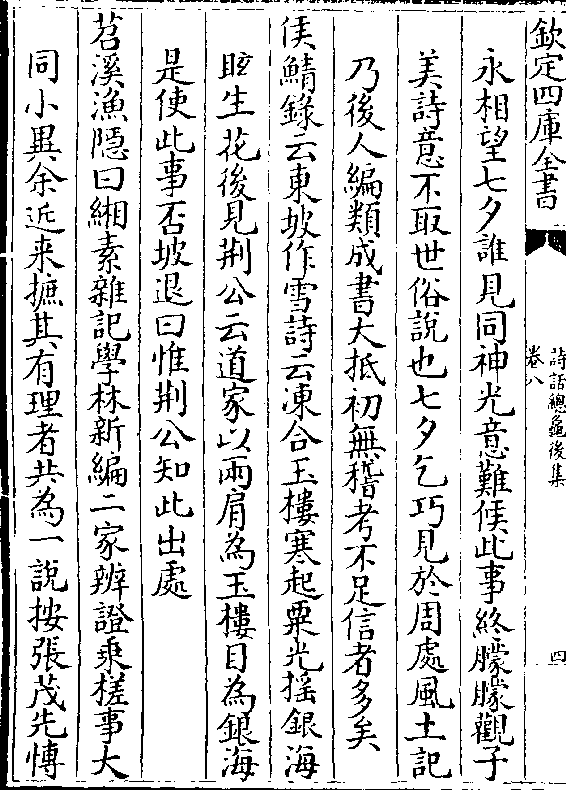 欽定四庫全書
詩話總龜後集
卷八
四
永相望七夕誰見同神光意難候此事終朦朦觀子
美詩意不取世俗說也七夕乞巧見於周處風土記
乃後人編類成書大抵初無稽考不足信者多矣
侯鯖錄云東坡作雪詩云凍合玉樓寒起粟光摇銀海
眩生花後見荆公云道家以兩肩為玉樓目為銀海
是使此事否坡退曰惟荆公知此出處
苕溪漁隠曰緗素雜記學林新編二家辨證乗槎事大
同小異余近来摭其有理者共為一說按張茂先愽